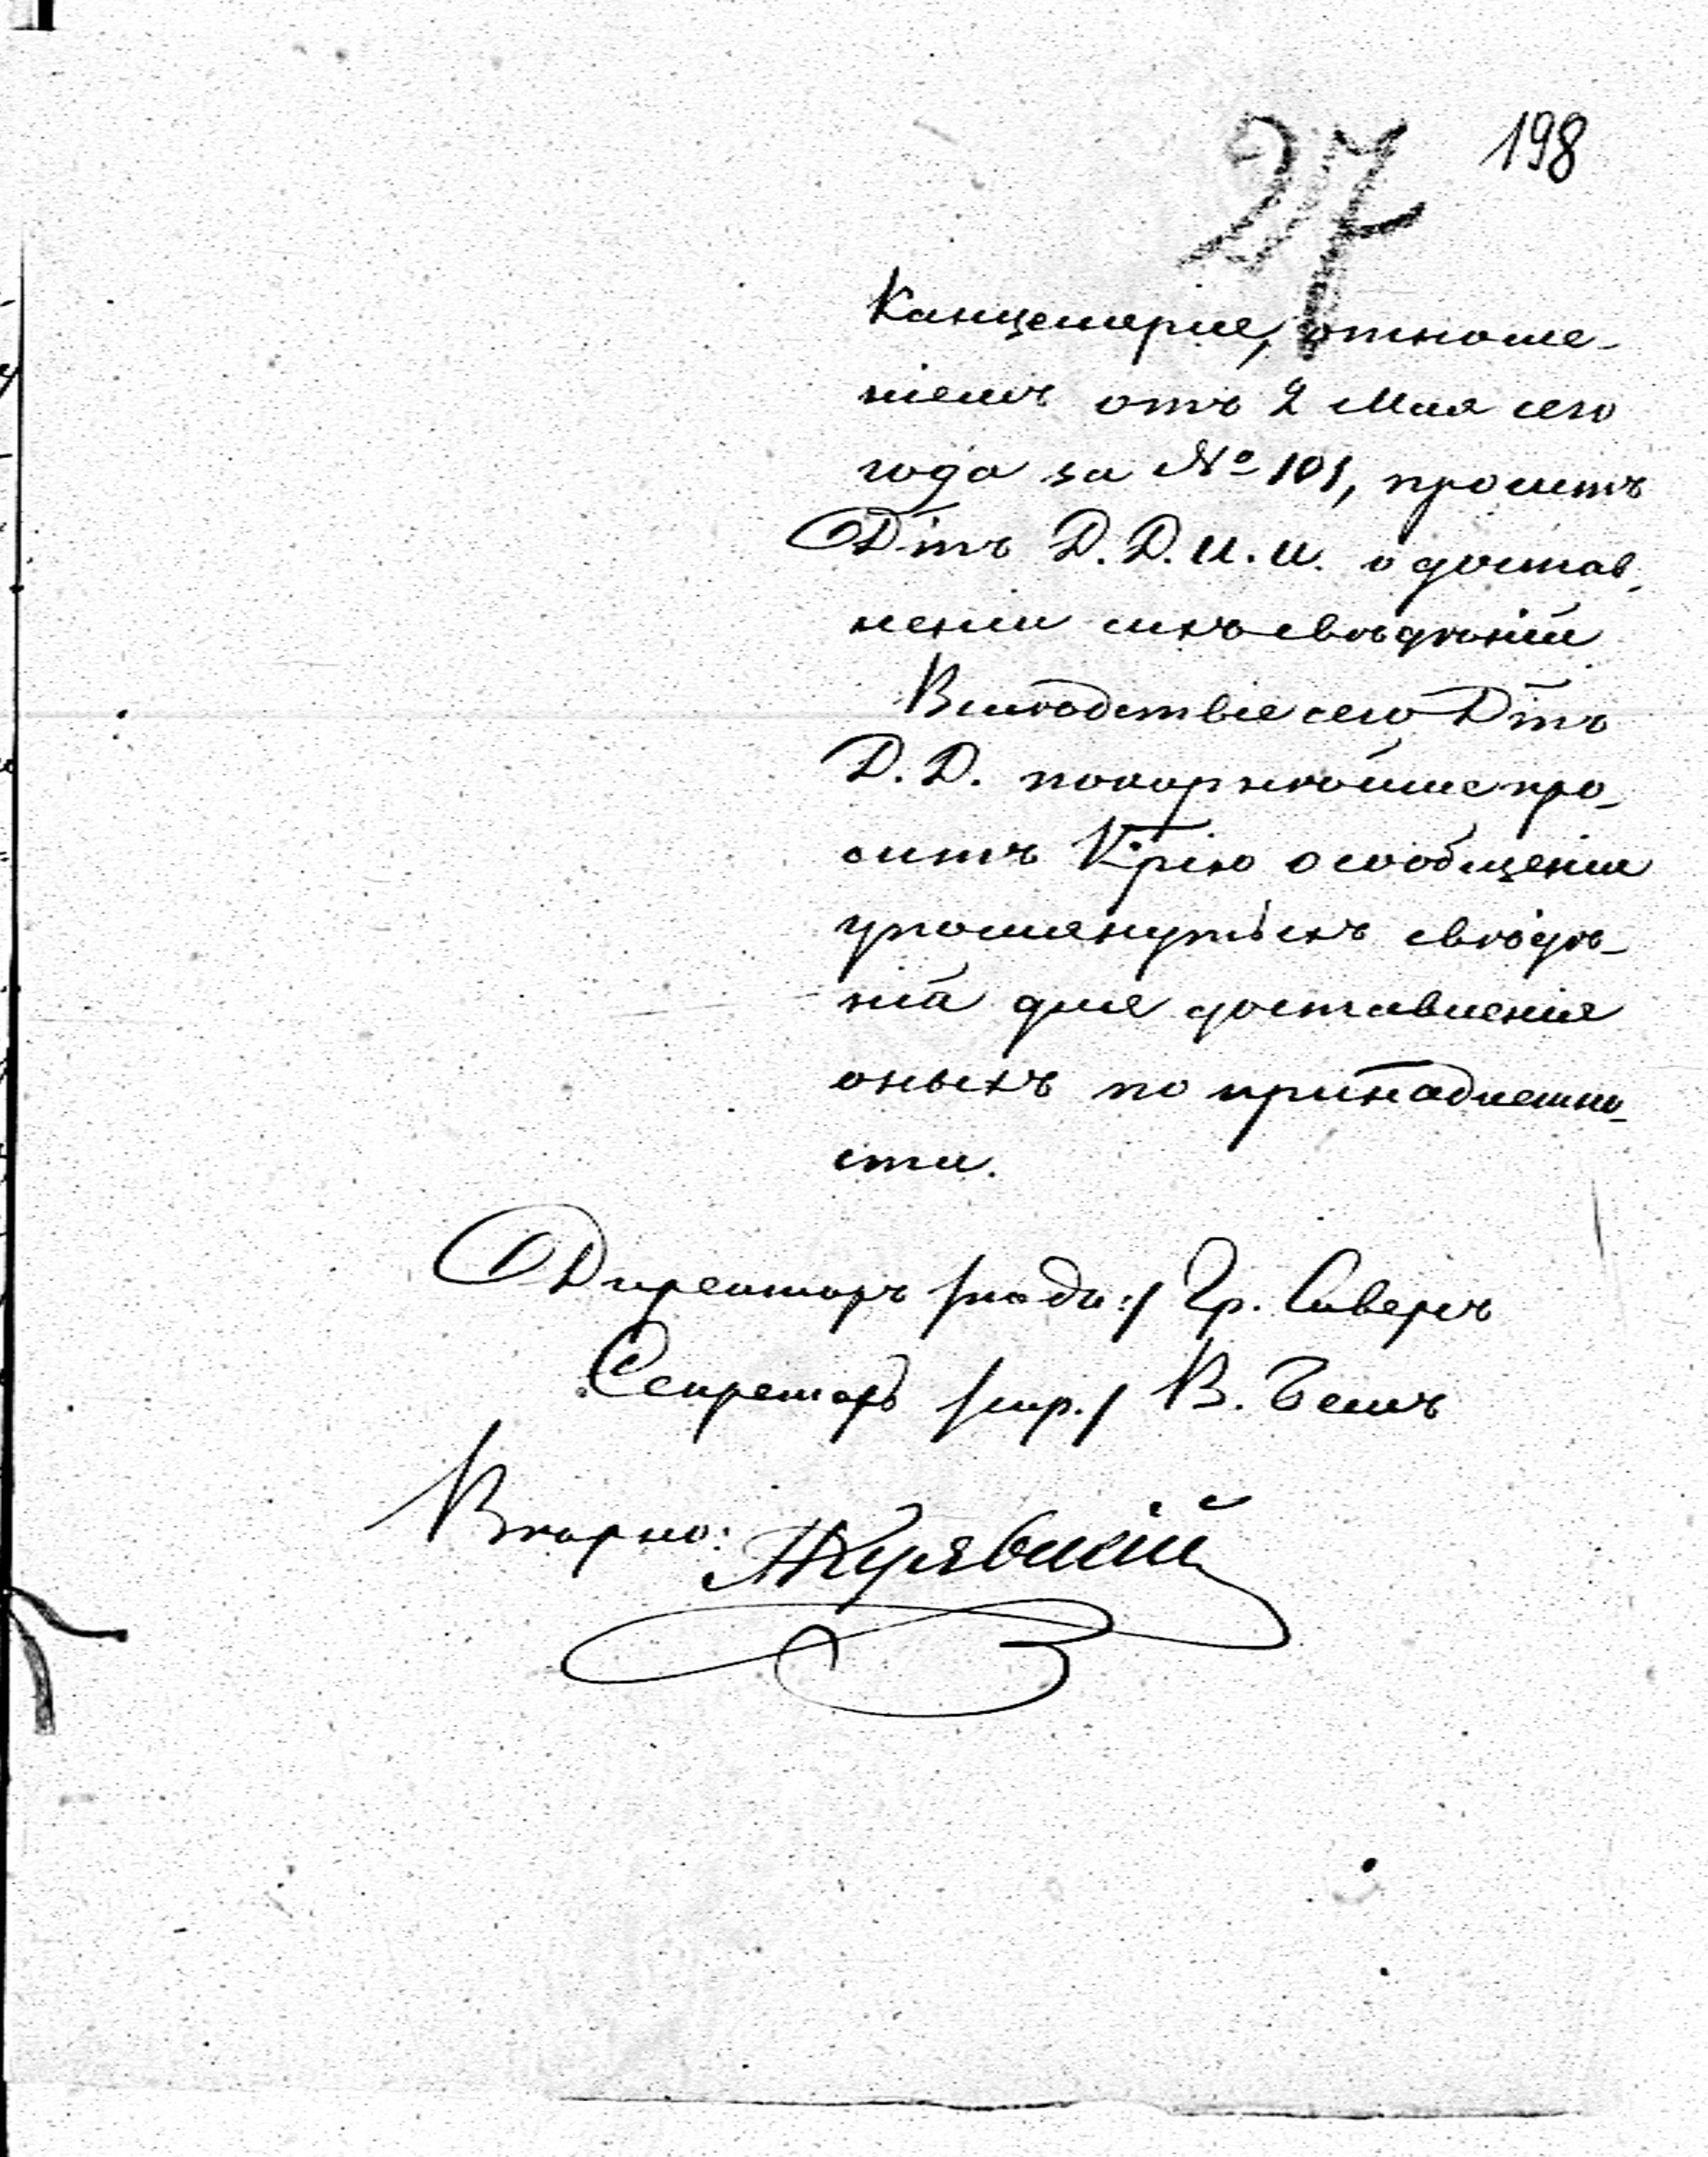 198
27
Канцелярія, отноше-
ніемъ отъ 2 Мая сего
года за № 101, проситъ
Дтъ Д.Д.И.И. о достав-
леніи ихъ свѣдѣній
Вслѣдствіе сего Дтъ
Д.Д. покорнѣйше про-
ситъ Крію о сообщеніи
упомянутыхъ свѣдѣ-
ній для доставленія
оныхъ по принадлежно-
сти.
Директоръ /подп:/ Гр. Сиверсъ
Секретарь /скр./ В.
Вѣрно: